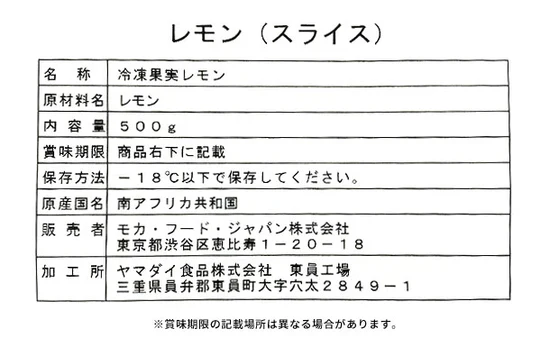 レモン（スライス）
名　称　冷凍果実レモン
原材料名　レモン
内容量　５００ｇ
賞味期限　商品右下に記載
保存方法　－１８℃以下で保存してください。
原産国名　南アフリカ共和国
販売者　モカ・フード・ジャパン株式会社
東京都渋谷区恵比寿１－２０－１８
加工所　ヤマダイ食品株式会社　東員工場
三重県員弁郡東員町大字穴太２８４９－１
※賞味期限の記載場所は異なる場合があります。